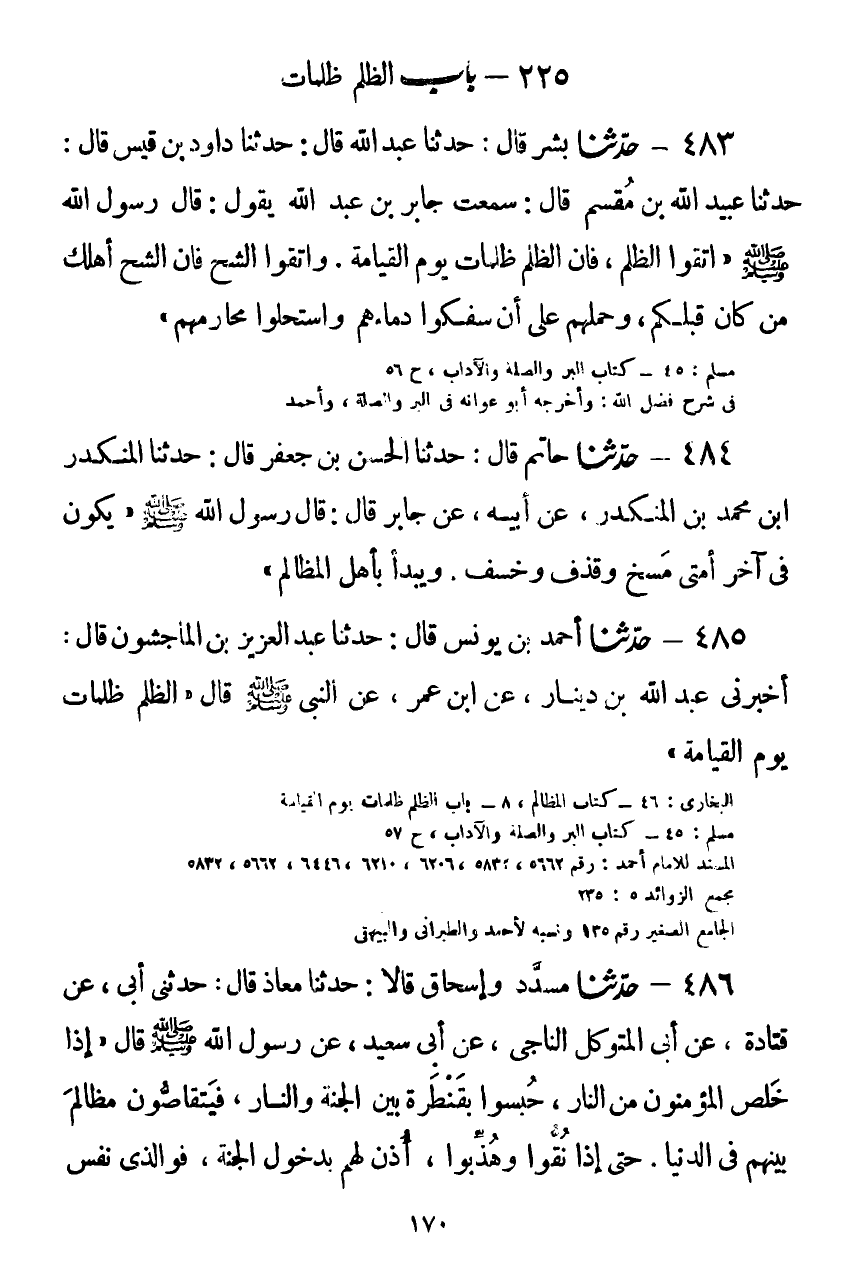 ٢٢٥ – باب الظلم ظلمات
٤٨٣ – حدّثنا بشر قال : حدثنا عبد الله قال : حدثنا داود بن قيس قال :
حدثنا عبيد الله بن مُقسم قال : سمعت جابر بن عبد الله يقول : قال رسول الله
ﷺ « اتقوا الظلم ، فان الظلم ظلمات يوم القيامة . واتقوا الشح فان الشح أهلك
من كان قبلكم ، وحملهم على أن سفكوا دماءهم واستحلوا محارمهم »
مسلم : ٤٥ – كتاب البر والصلة والآداب ، ح ٥٦
فى شرح فضل الله : وأخرجه أبو عوانه فى البر والصلة ، وأحمد
٤٨٤ – حدّثنا حاتم قال : حدثنا الحسن بن جعفر قال : حدثنا المنكدر
ابن محمد بن المنكدر ، عن أبيه ، عن جابر قال : قال رسول الله ﷺ « يكون
فى آخر أمتى مَسخ وقذف وخسف . ويبدأ بأهل المظالم »
٤٨٥ – حدّثنا أحمد بن يونس قال : حدثنا عبد العزيز بن الماجشون قال :
أخبرنى عبد الله بن دينار ، عن ابن عمر ، عن النبى ﷺ قال « الظلم ظلمات
يوم القيامة »
البخارى : ٤٦ – كتاب المظالم ، ٨ – باب الظلم ظلمات يوم القيامة
مسلم : ٤٥ – كتاب البر والصلة والآداب ، ح ٥٧
المسند للامام أحمد : رقم ٥٦٦٢ ، ٦٢٠٦ ، ٦٢١٠ ، ٦٤٤٦ ، ٥٦٦٢ ، ٥٨٣٢
مجمع الزوائد ٥ : ٢٣٥
الجامع الصغير رقم ١٣٥ ونسبه لأحمد والطبرانى والبيهقى
٤٨٦ – حدّثنا مسدَّد وإسحاق قالا : حدثنا معاذ قال : حدثنى أبى ، عن
قتادة ، عن أبى المتوكل الناجى ، عن أبى سعيد ، عن رسول الله ﷺ قال « إذا
خَلص المؤمنون من النار ، حُبسوا بقَنْطَرة بين الجنة والنار ، فيَتقاصُّون مظالمَ
بينهم فى الدنيا . حتى إذا نُقُّوا وهُذِّبوا ، أُذن لهم بدخول الجنة ، فوالذى نفس
١٧٠